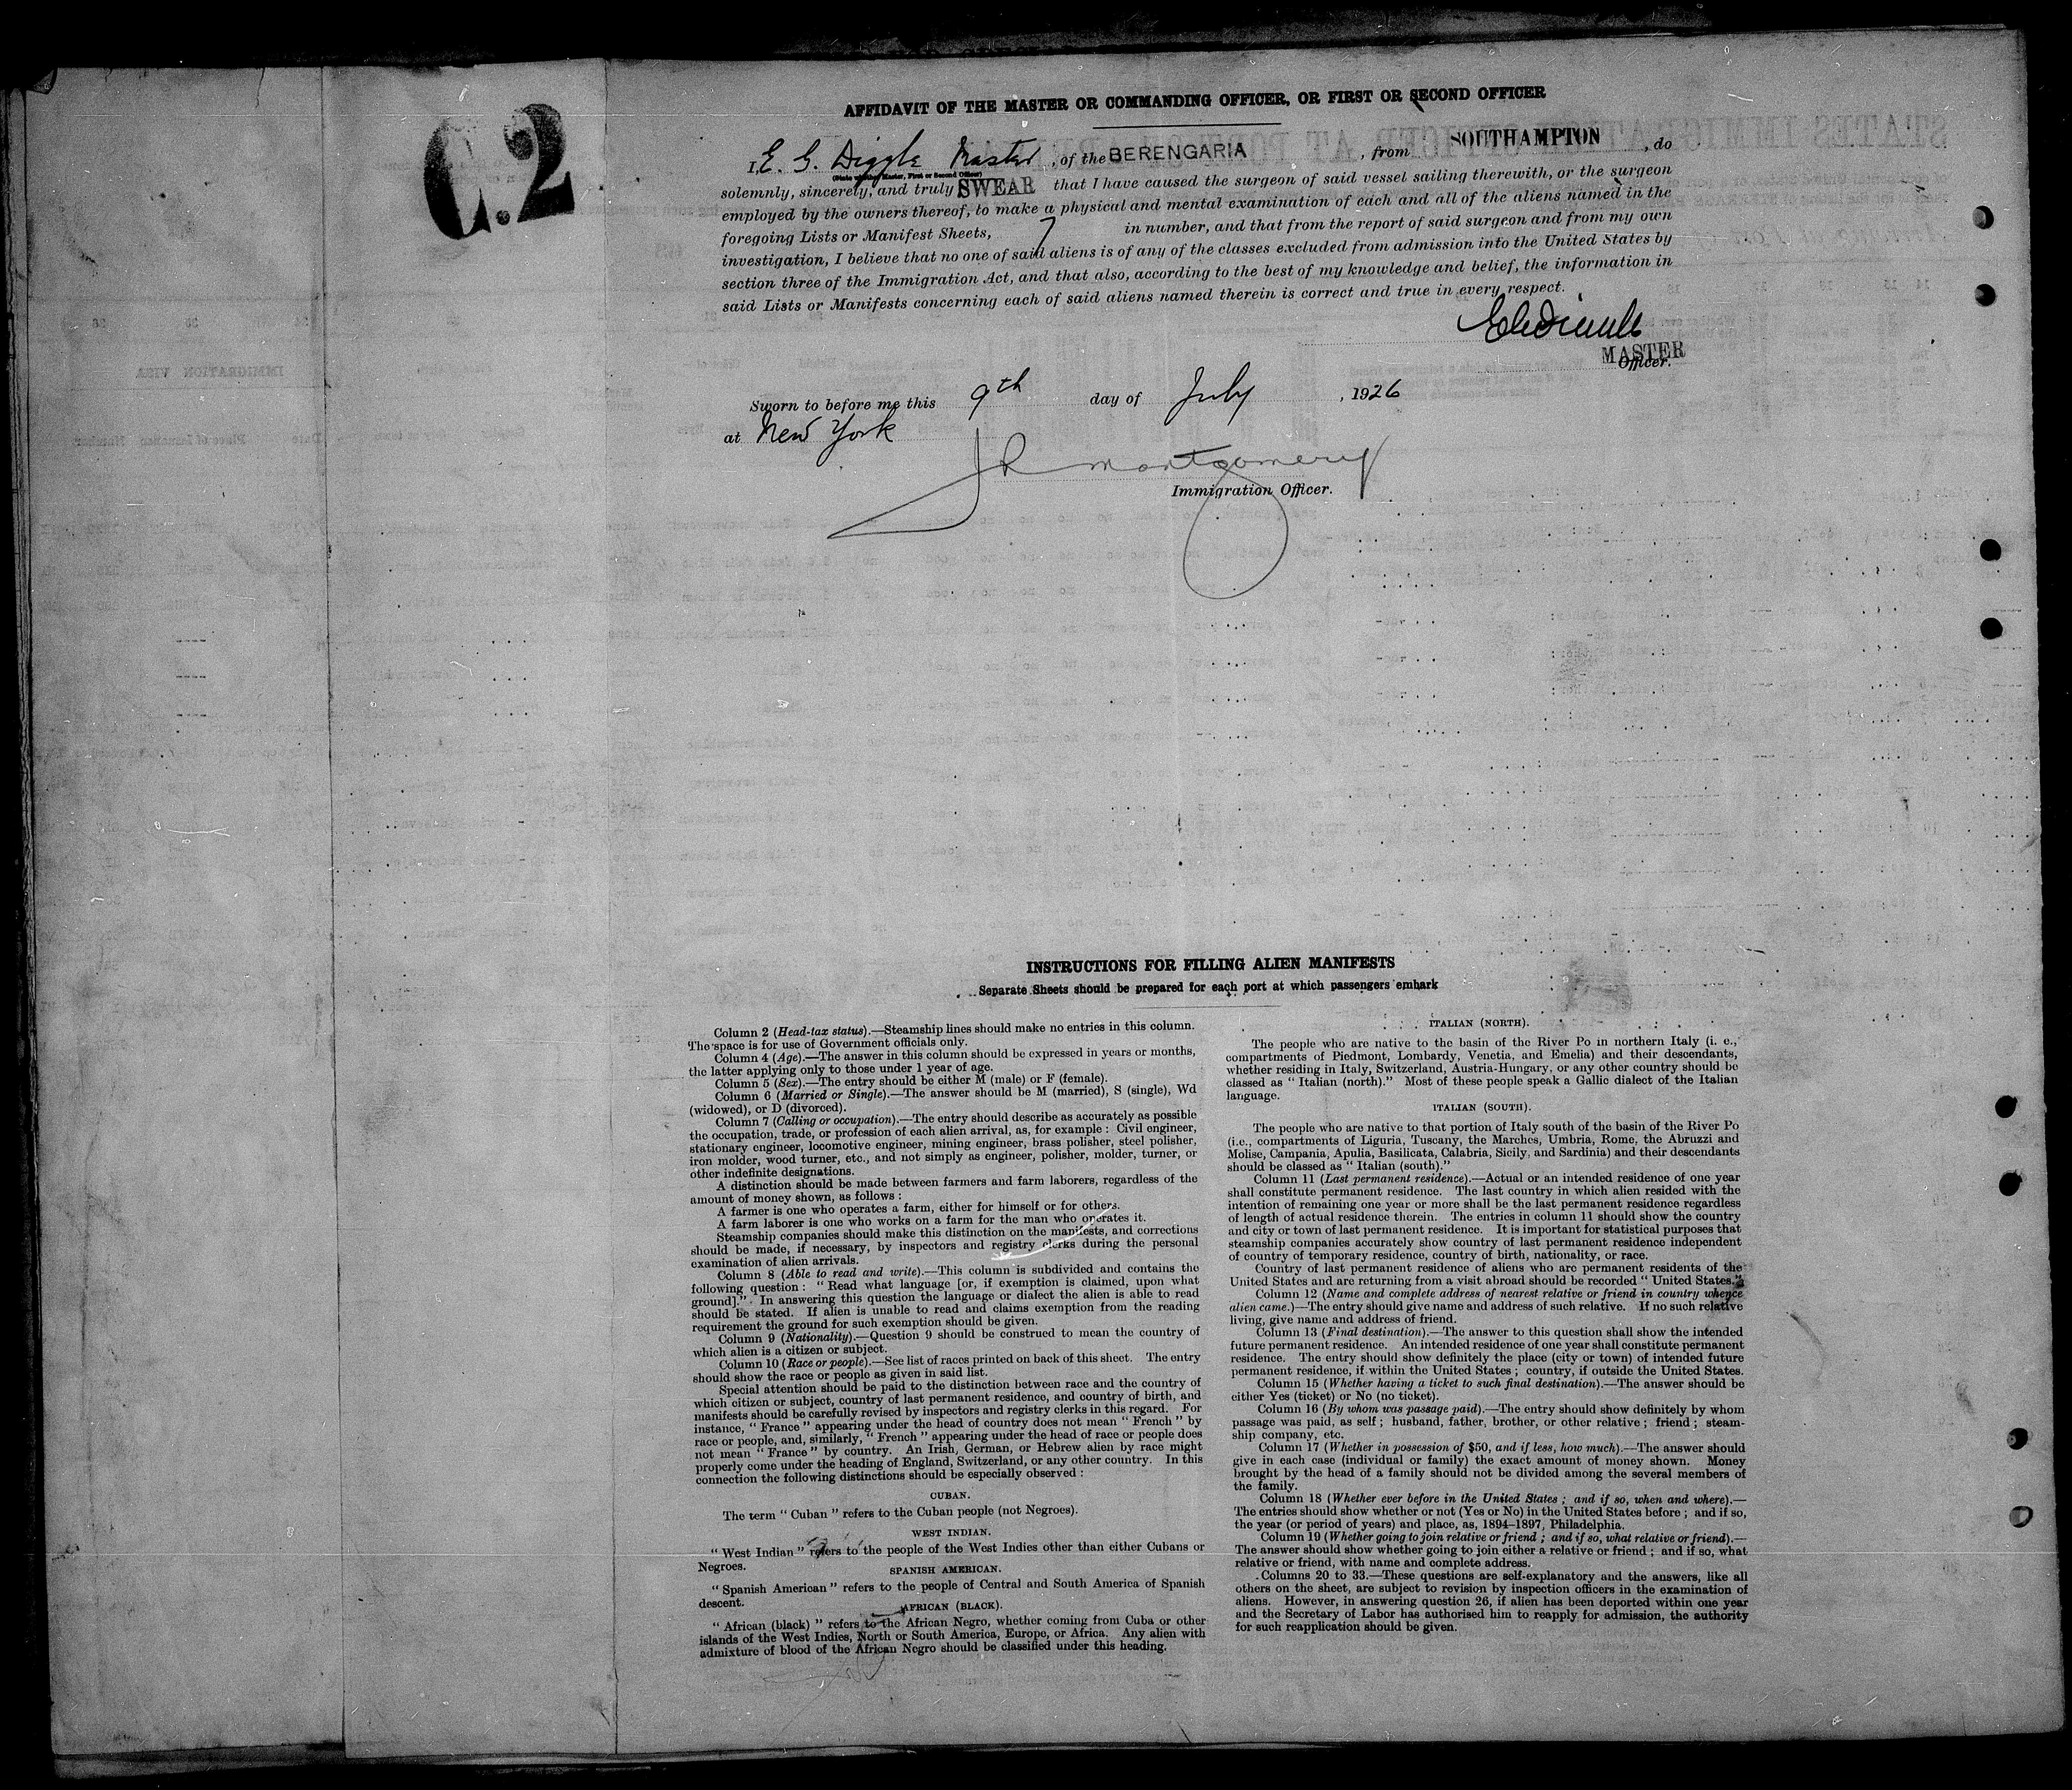 C.2
AFFIDAVIT OF THE MASTER OR COMMANDING OFFICER, OR FIRST OR SECOND OFFICER
I, E. G. Diggle Master, of the BERENGARIA, from SOUTHAMPTON, do
(State whether Master, First or Second Officer)
solemnly, sincerely, and truly SWEAR that I have caused the surgeon of said vessel sailing therewith, or the surgeon
employed by the owners thereof, to make a physical and mental examination of each and all of the aliens named in the
foregoing Lists or Manifest Sheets, 7 in number, and that from the report of said surgeon and from my own
investigation, I believe that no one of said aliens is of any of the classes excluded from admission into the United States by
section three of the Immigration Act, and that also, according to the best of my knowledge and belief, the information in
said Lists or Manifests concerning each of said aliens named therein is correct and true in every respect.
MASTER
Officer.
Sworn to before me this 9th day of July, 1926
at New York
J R Montgomery
Immigration Officer.
INSTRUCTIONS FOR FILLING ALIEN MANIFESTS
Separate Sheets should be prepared for each port at which passengers embark
Column 2 (Head-tax status).—Steamship lines should make no entries in this column.
The space is for use of Government officials only.
Column 4 (Age).—The answer in this column should be expressed in years or months,
the latter applying only to those under 1 year of age.
Column 5 (Sex).—The entry should be either M (male) or F (female).
Column 6 (Married or Single).—The answer should be M (married), S (single), Wd
(widowed), or D (divorced).
Column 7 (Calling or occupation).—The entry should describe as accurately as possible
the occupation, trade, or profession of each alien arrival, as, for example : Civil engineer,
stationary engineer, locomotive engineer, mining engineer, brass polisher, steel polisher,
iron molder, wood turner, etc., and not simply as engineer, polisher, molder, turner, or
other indefinite designations.
A distinction should be made between farmers and farm laborers, regardless of the
amount of money shown, as follows :
A farmer is one who operates a farm, either for himself or for others.
A farm laborer is one who works on a farm for the man who operates it.
Steamship companies should make this distinction on the manifests, and corrections
should be made, if necessary, by inspectors and registry clerks during the personal
examination of alien arrivals.
Column 8 (Able to read and write).—This column is subdivided and contains the
following question : " Read what language [or, if exemption is claimed, upon what
ground]." In answering this question the language or dialect the alien is able to read
should be stated. If alien is unable to read and claims exemption from the reading
requirement the ground for such exemption should be given.
Column 9 (Nationality).—Question 9 should be construed to mean the country of
which alien is a citizen or subject.
Column 10 (Race or people).—See list of races printed on back of this sheet. The entry
should show the race or people as given in said list.
Special attention should be paid to the distinction between race and the country of
which citizen or subject, country of last permanent residence, and country of birth, and
manifests should be carefully revised by inspectors and registry clerks in this regard. For
instance, " France " appearing under the head of country does not mean " French " by
race or people, and, similarly, " French " appearing under the head of race or people does
not mean " France " by country. An Irish, German, or Hebrew alien by race might
properly come under the heading of England, Switzerland, or any other country. In this
connection the following distinctions should be especially observed :
CUBAN.
The term " Cuban " refers to the Cuban people (not Negroes).
WEST INDIAN.
" West Indian " refers to the people of the West Indies other than either Cubans or
Negroes.
SPANISH AMERICAN.
" Spanish American " refers to the people of Central and South America of Spanish
descent.
AFRICAN (BLACK).
" African (black) " refers to the African Negro, whether coming from Cuba or other
islands of the West Indies, North or South America, Europe, or Africa. Any alien with
admixture of blood of the African Negro should be classified under this heading.
ITALIAN (NORTH).
The people who are native to the basin of the River Po in northern Italy (i. e.,
compartments of Piedmont, Lombardy, Venetia, and Emelia) and their descendants,
whether residing in Italy, Switzerland, Austria-Hungary, or any other country should be
classed as " Italian (north)." Most of these people speak a Gallic dialect of the Italian
language.
ITALIAN (SOUTH).
The people who are native to that portion of Italy south of the basin of the River Po
(i.e., compartments of Liguria, Tuscany, the Marches, Umbria, Rome, the Abruzzi and
Molise, Campania, Apulia, Basilicata, Calabria, Sicily, and Sardinia) and their descendants
should be classed as " Italian (south)."
Column 11 (Last permanent residence).—Actual or an intended residence of one year
shall constitute permanent residence. The last country in which alien resided with the
intention of remaining one year or more shall be the last permanent residence regardless
of length of actual residence therein. The entries in column 11 should show the country
and city or town of last permanent residence. It is important for statistical purposes that
steamship companies accurately show country of last permanent residence independent
of country of temporary residence, country of birth, nationality, or race.
Country of last permanent residence of aliens who are permanent residents of the
United States and are returning from a visit abroad should be recorded " United States."
Column 12 (Name and complete address of nearest relative or friend in country whence
alien came.)—The entry should give name and address of such relative. If no such relative
living, give name and address of friend.
Column 13 (Final destination).—The answer to this question shall show the intended
future permanent residence. An intended residence of one year shall constitute permanent
residence. The entry should show definitely the place (city or town) of intended future
permanent residence, if within the United States ; country, if outside the United States.
Column 15 (Whether having a ticket to such final destination).—The answer should be
either Yes (ticket) or No (no ticket).
Column 16 (By whom was passage paid).—The entry should show definitely by whom
passage was paid, as self ; husband, father, brother, or other relative ; friend ; steam-
ship company, etc.
Column 17 (Whether in possession of $50, and if less, how much).—The answer should
give in each case (individual or family) the exact amount of money shown. Money
brought by the head of a family should not be divided among the several members of
the family.
Column 18 (Whether ever before in the United States ; and if so, when and where).—
The entries should show whether or not (Yes or No) in the United States before ; and if so,
the year (or period of years) and place, as, 1894–1897, Philadelphia.
Column 19 (Whether going to join relative or friend ; and if so, what relative or friend).—
The answer should show whether going to join either a relative or friend ; and if so, what
relative or friend, with name and complete address.
Columns 20 to 33.—These questions are self-explanatory and the answers, like all
others on the sheet, are subject to revision by inspection officers in the examination of
aliens. However, in answering question 26, if alien has been deported within one year
and the Secretary of Labor has authorised him to reapply for admission, the authority
for such reapplication should be given.